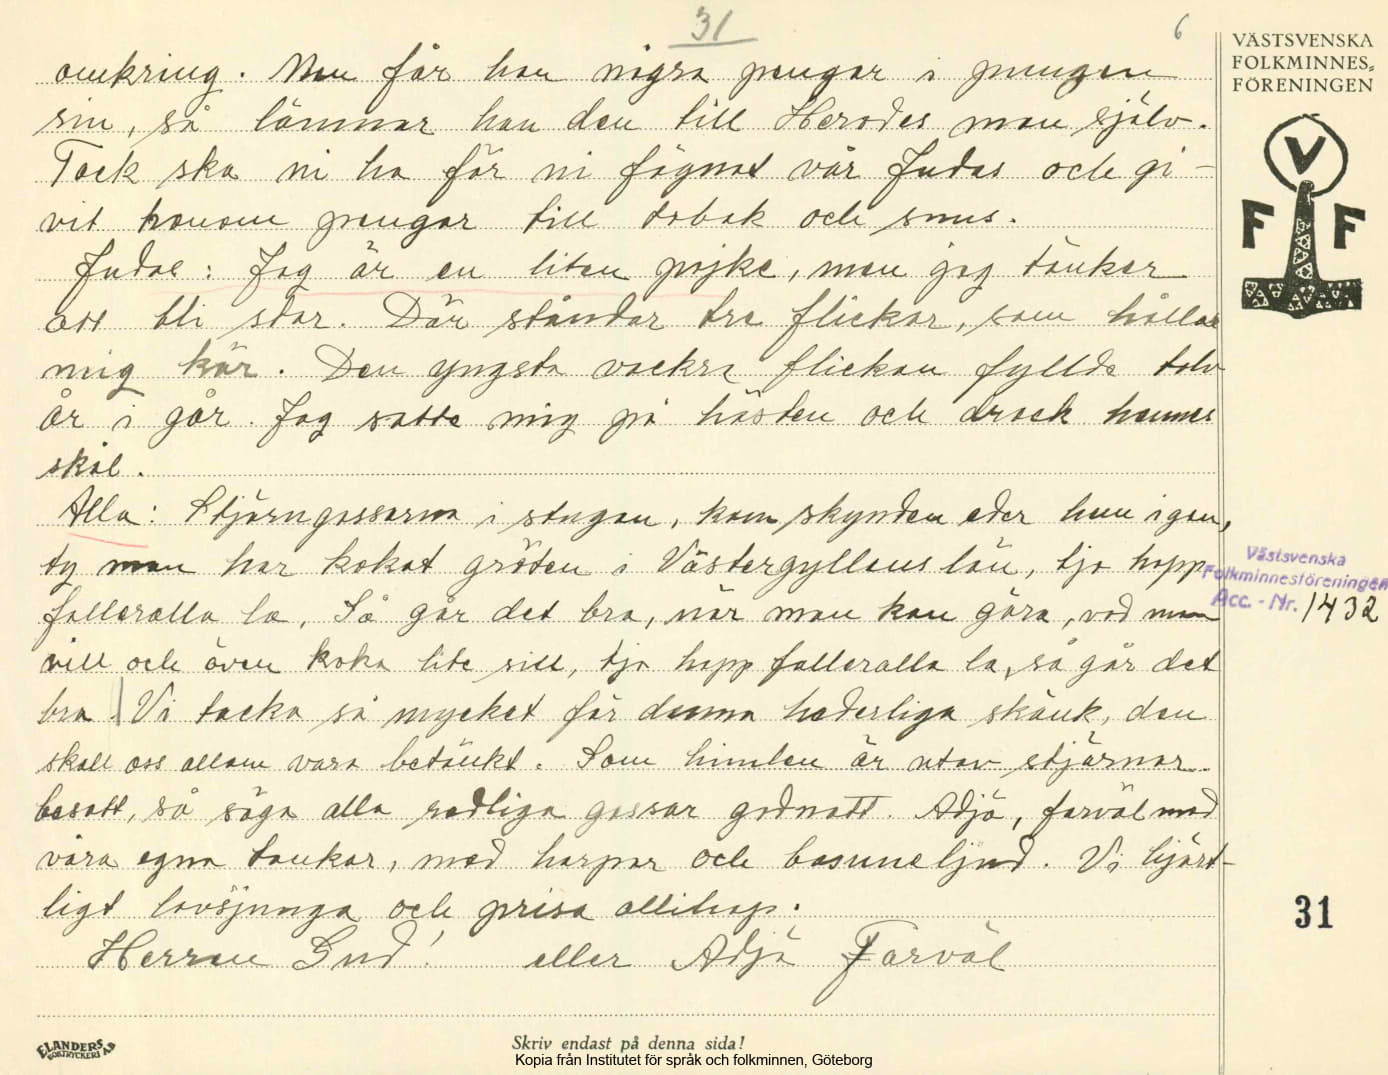 31
6
omkring. Men får han några pengar i pungen
sin, så lämnar han den till Herodes man själv.
Tack ska ni ha för ni fägnat vår Judas och gi-
vit honom pengar till tobak och snus.
Judas: Jag är en liten pojke, men jag tänker
att bli stor. Där ståndar tre flickor, som hålla
mig kär. Den yngsta vackra flickan fyllde tolv
år i går. Jag satte mig på hästen och drack hennes
skål.
Alla: Stjärngossarna i stugan, kom skynden eder hem igen,
ty man har kokat gröten i Västergyllens län, tjo hopp
falleralla la, Så går det bra, när man kan göra, vad man
vill och även koka lite sill, tjo hopp falleralla la, så går det
bra. Vi tacka så mycket för denna hederliga skänk, den
skall oss allom vara betänkt. Som himlen är utav stjärnor
besatt, så säga alla redliga gossar godnatt. Adjö, farväl med
våra egna tankar, med harpor och basuneljud. Vi hjärt-
ligt lovsjunga och prisa allihop.
Herren Gud! eller Adjö Farväl
VÄSTSVENSKA
FOLKMINNES-
FÖRENINGEN
V
F F
Västsvenska
Folkminnesföreningen
Acc. - Nr. 1432
31
ELANDERS
BOKTRYCKERI AB
Skriv endast på denna sida!
Kopia från Institutet för språk och folkminnen, Göteborg